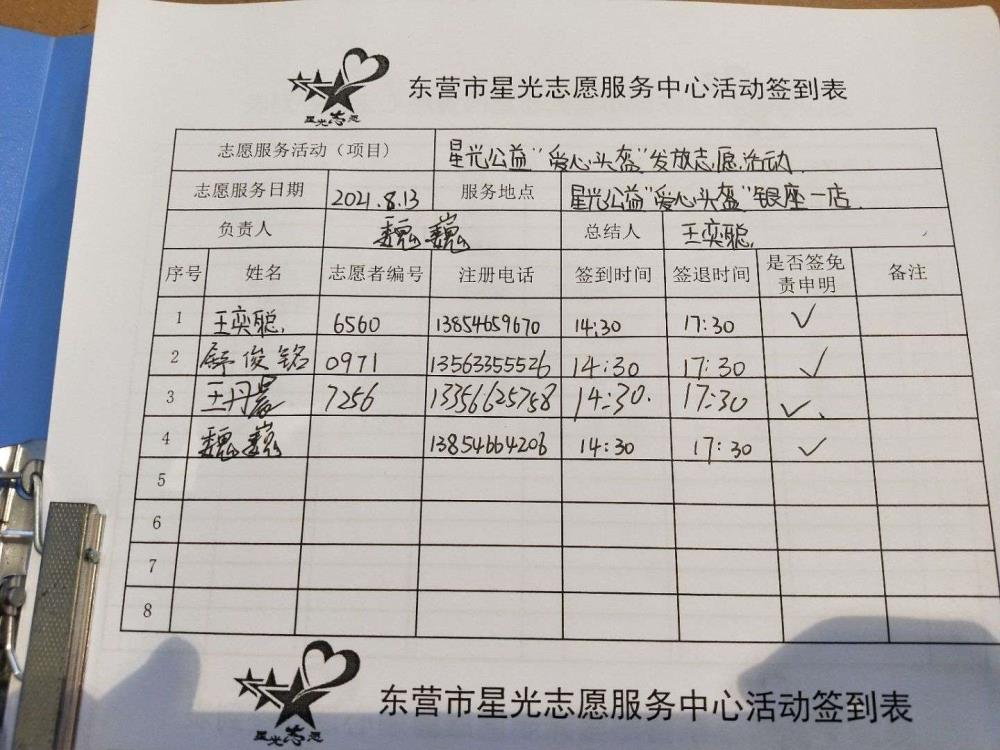 星光志愿
东营市星光志愿服务中心活动签到表
志愿服务活动（项目） 星光公益"爱心头盔"发放志愿活动
志愿服务日期 2021.8.13 服务地点 星光公益"爱心头盔"银座一店
负责人 魏巍 总结人 王奕聪
序号 姓名 志愿者编号 注册电话 签到时间 签退时间 是否签免责申明 备注
1 王奕聪 6560 13854659670 14:30 17:30 ✓
2 俊铭 0971 13563355526 14:30 17:30 ✓
3 王丹晨 7256 13356625758 14:30. 17:30 ✓
4 魏巍 13854664206 14:30 17:30 ✓
5
6
7
8
星光志愿
东营市星光志愿服务中心活动签到表